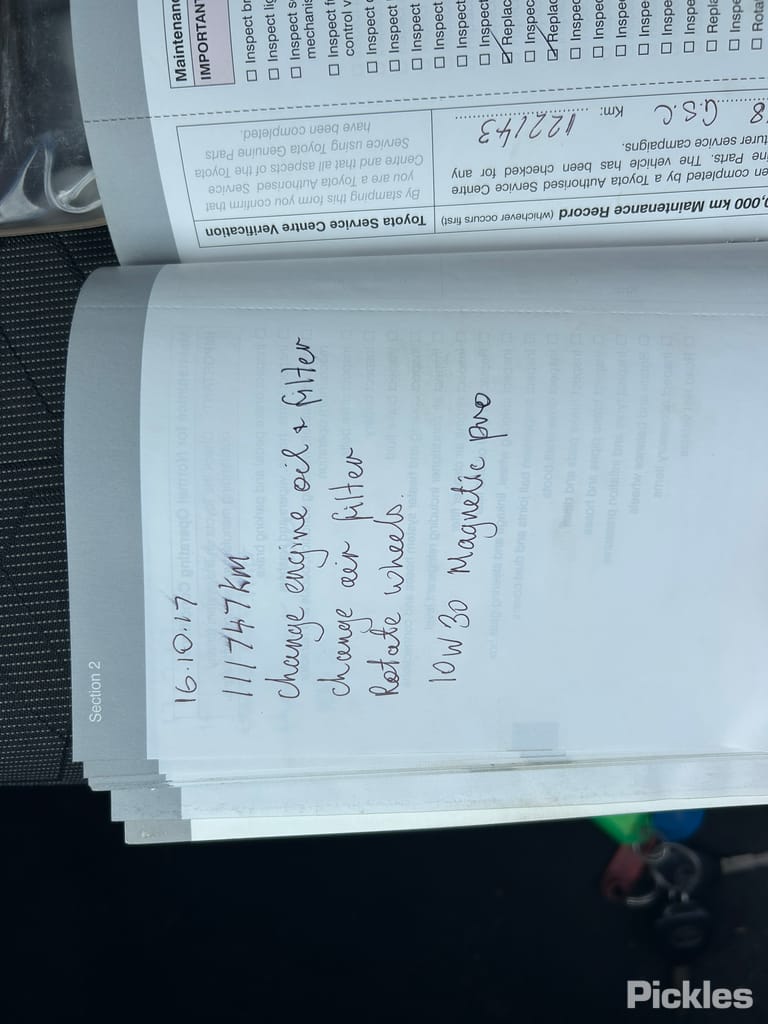 Section 2
16.10.17
111747km
Change engine oil & filter
Change air filter
Rotate wheels.
10W30 Magnetic pro
Toyota Service Centre Verification
By stamping this form you confirm that
you are a Toyota Authorised Service
Centre and that all aspects of the Toyota
Service using Toyota Genuine Parts
have been completed.
,000 km Maintenance Record (whichever occurs first)
en completed by a Toyota Authorised Service Centre
ine Parts. The vehicle has been checked for any
turer service campaigns.
8 G.S.C Km: 122143
Maintenanc
IMPORTANT
Inspect br
Inspect lig
Inspect s
mechani
Inspect f
control v
Inspect
Inspect
Inspect
Inspect
Inspect
Inspect
Replac
Inspec
Replac
Inspec
Inspec
Inspe
Inspe
Inspe
Inspe
Repla
Inspe
Rota
Pickles